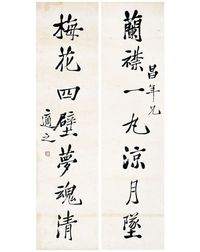 蘭襟一丸涼月墜
昌年兄
梅花四壁夢魂清
適之